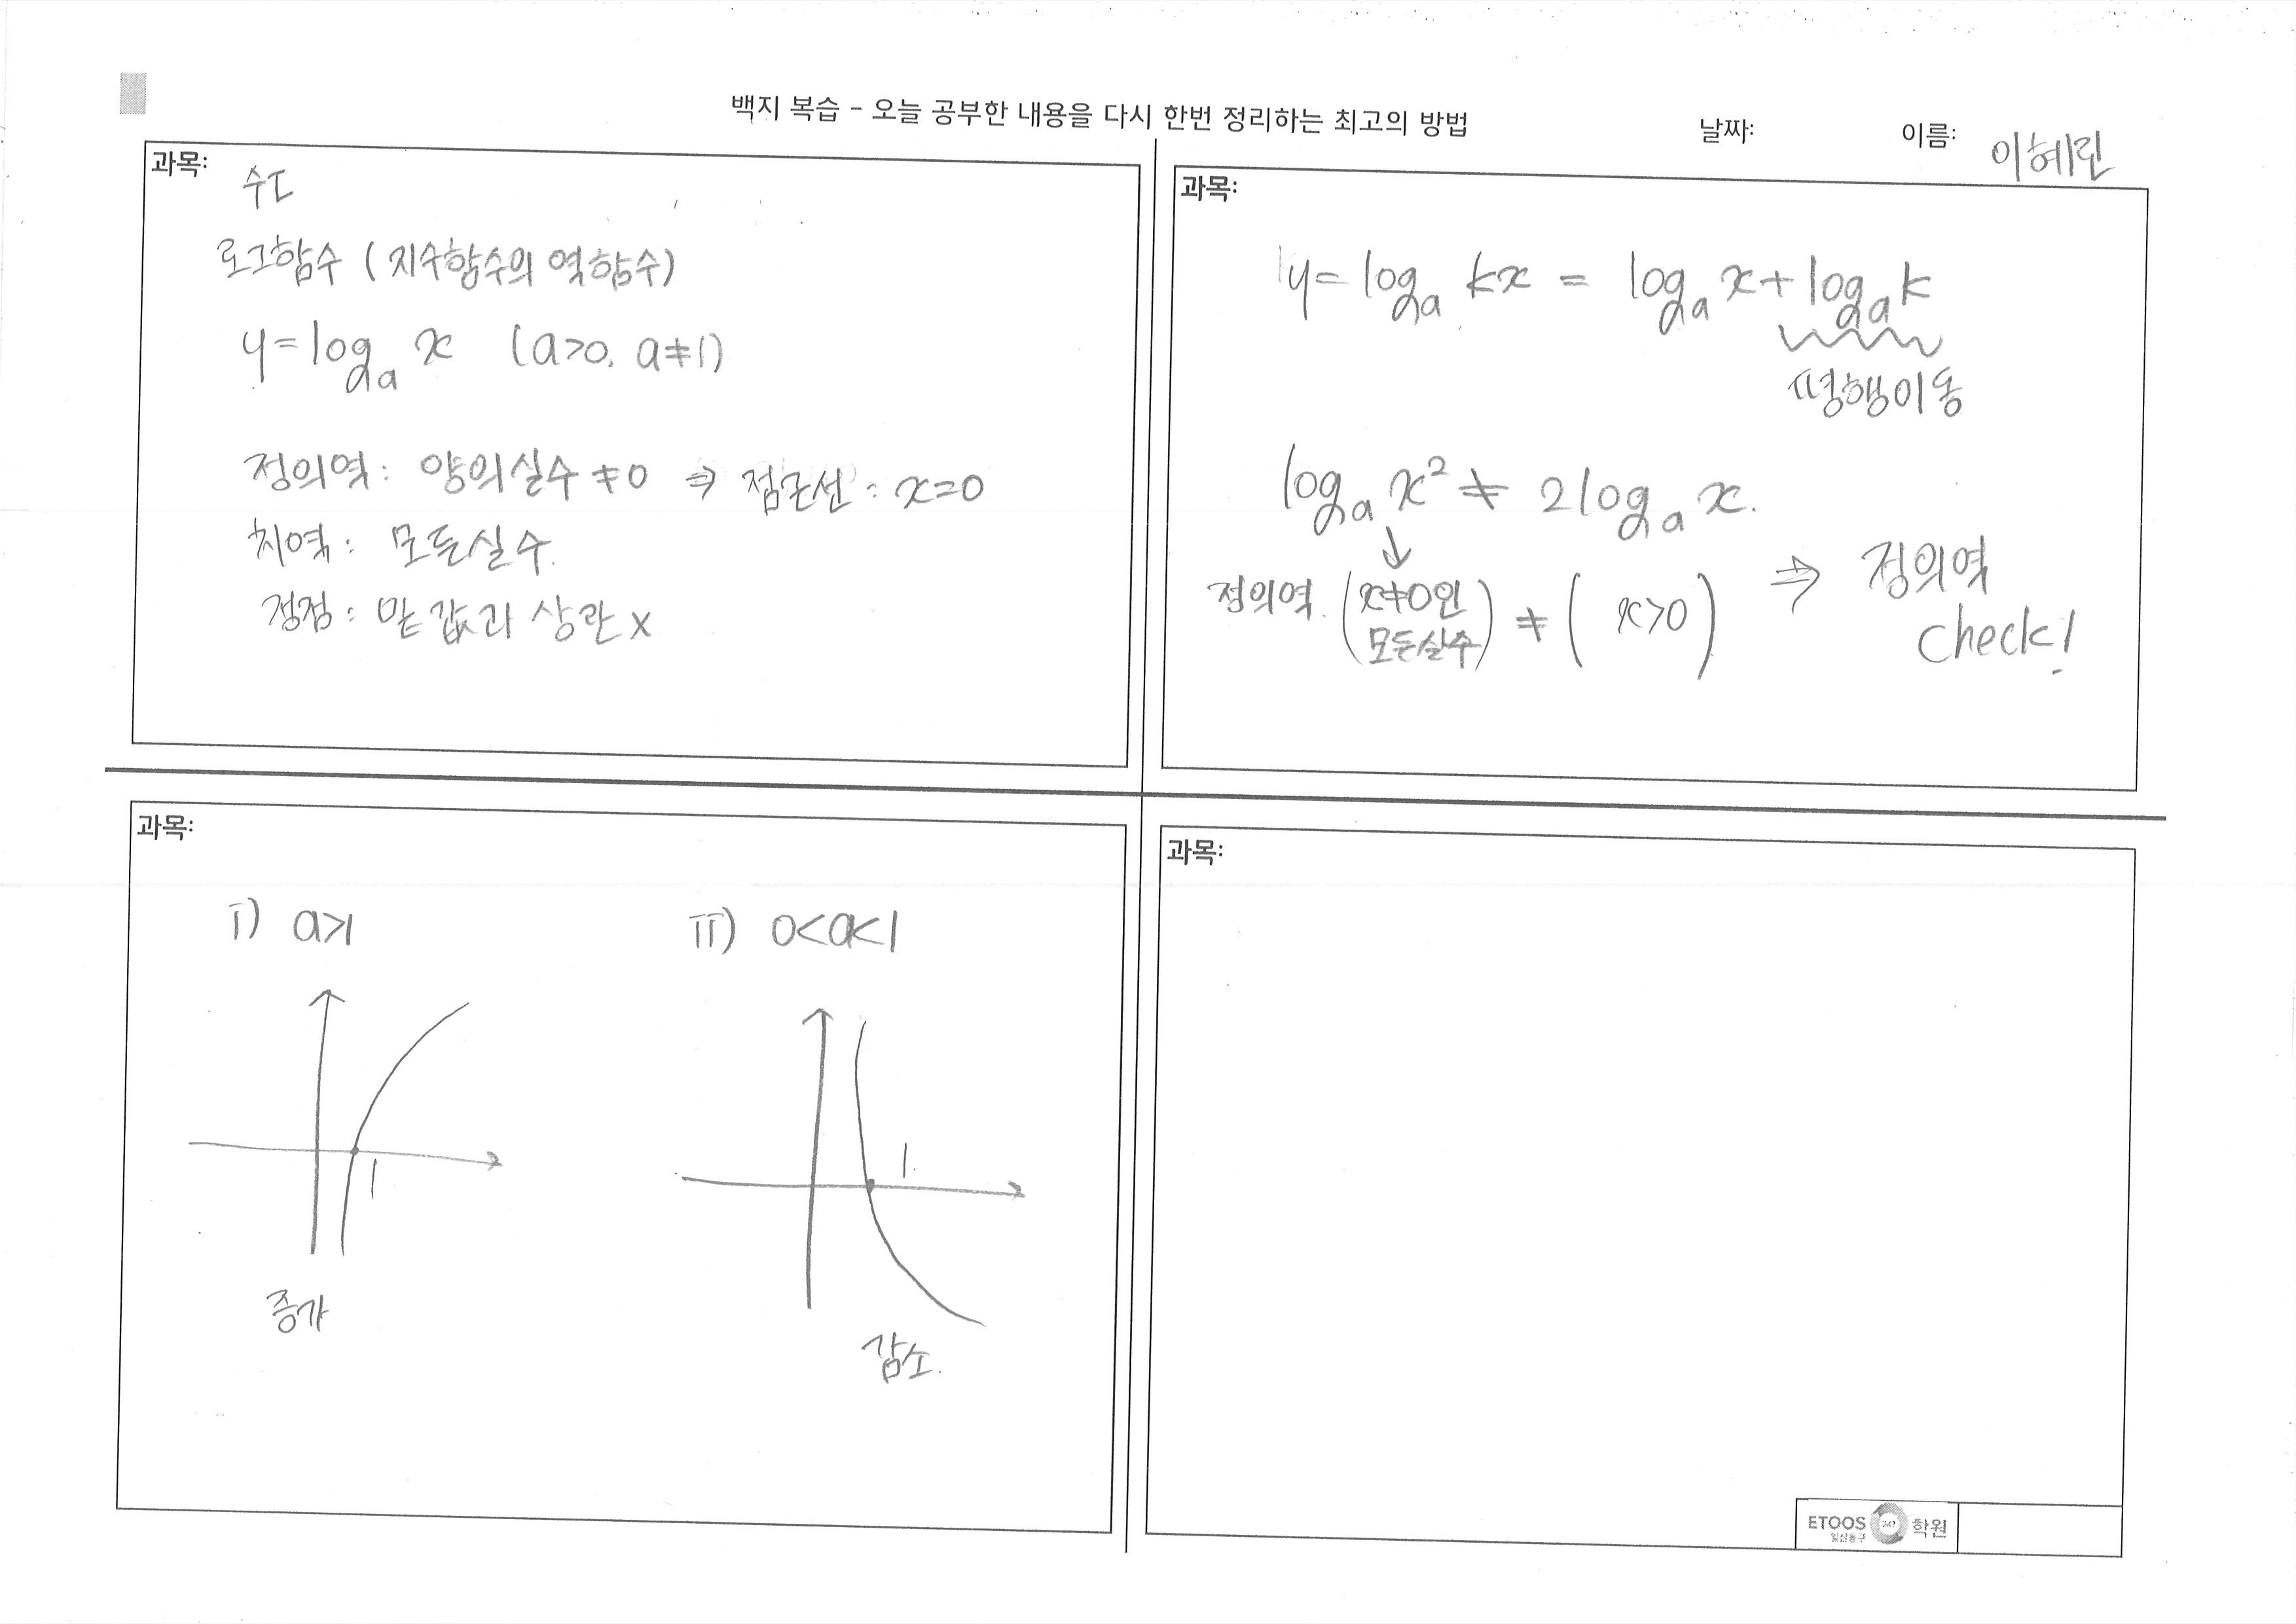 백지 복습 - 오늘 공부한 내용을 다시 한번 정리하는 최고의 방법
날짜:
이름: 이혜린
과목: 수I
로그함수 (지수함수의 역함수)
y=logₐ x (a>0, a≠1)
정의역: 양의실수 ≠0 ⇒ 점근선: x=0
치역: 모든실수.
정점: 밑 값과 상관 x
과목:
y= logₐ kx = logₐ x + logₐ k
평행이동
logₐ x² ≠ 2logₐ x.
↓
정의역. (x≠0인 모든실수) ≠ (x>0) ⇒ 정의역 check!
과목:
i) a>1
ii) 0<a<1
1
1.
증가
감소.
과목:
ETOOS 247 학원
일산동구